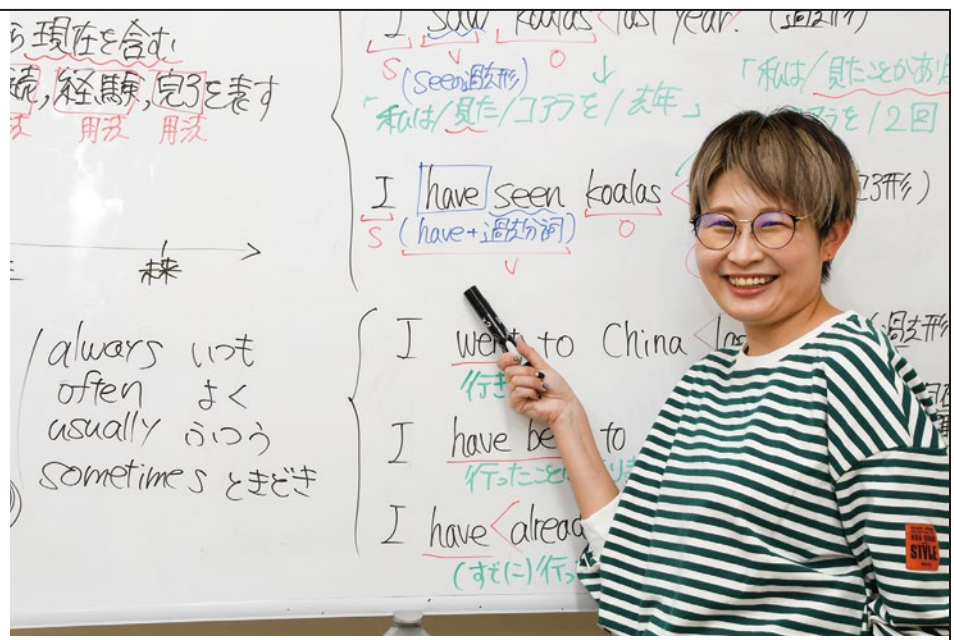 ら現在を含む
続,経験,完了を表す
用法 用法
未来
always いつも
often よく
usually ふつう
sometimes ときどき
I saw koalas last year. (過去形)
S V O
(seenの過去形)
「私は/見た/コアラを/去年」
「私は/見たことがあ
を/2回
I have seen koalas
了形)
S (have+過去分詞) O
V
I went to China
(過去形
行き
I have be to
行ったこと
I have alread
(すでに)行っ
STYLE